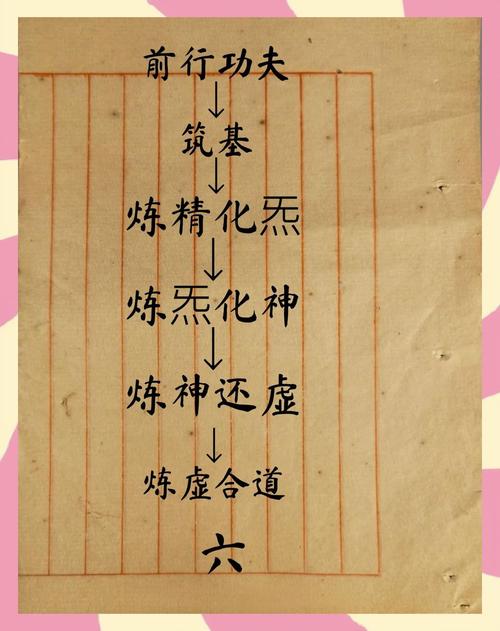 前行功夫
↓
筑基
↓
炼精化炁
↓
炼炁化神
↓
炼神还虚
↓
炼虚合道
六